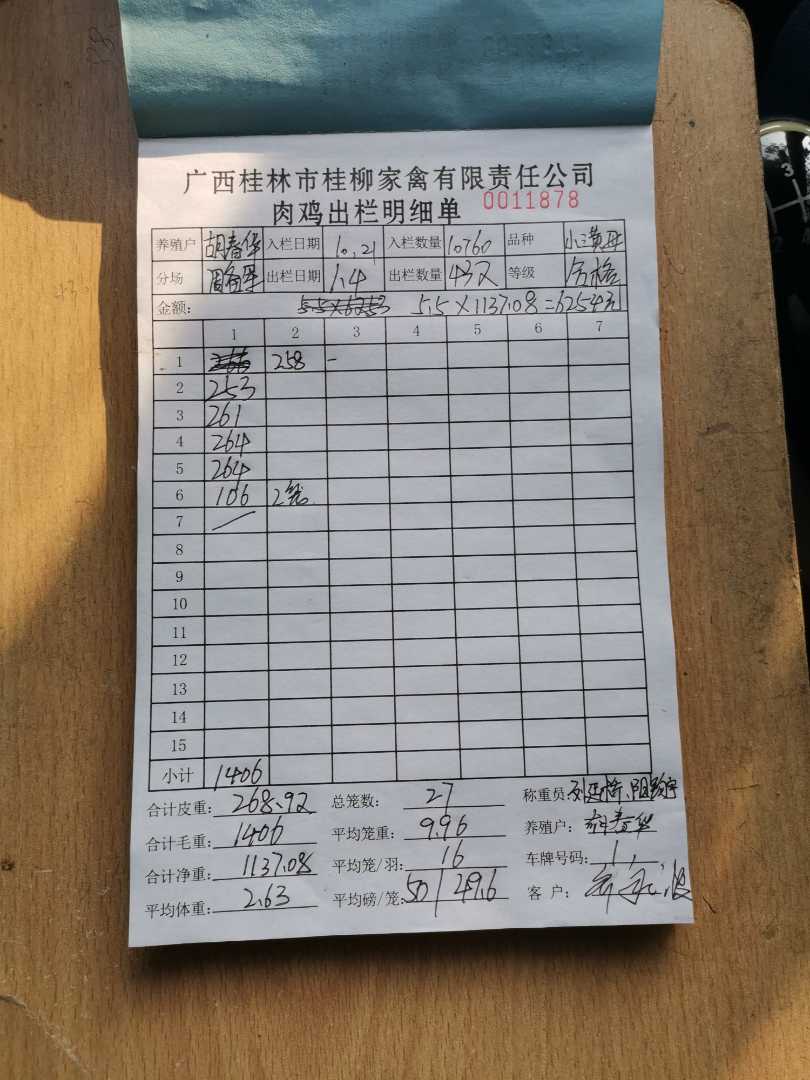 广西桂林市桂柳家禽有限责任公司
肉鸡出栏明细单 0011878
养殖户 胡春华 入栏日期 10.21 入栏数量 10760 品种
分场 出栏日期 1.4 出栏数量 432 等级 合格
金额: 5.5×6253 5.5×1137.08=6254元
1 2 3 4 5 6 7
1 258 -
2 253
3 261
4 264
5 264
6 106 2笼
7
8
9
10
11
12
13
14
15
小计 1406
合计皮重: 268.92 总笼数: 27 称重员:
合计毛重: 1406 平均笼重: 9.96 养殖户: 胡春华
合计净重: 1137.08 平均笼/羽: 16 车牌号码: 1
平均体重: 2.63 平均磅/笼: 50/49.6 客户: